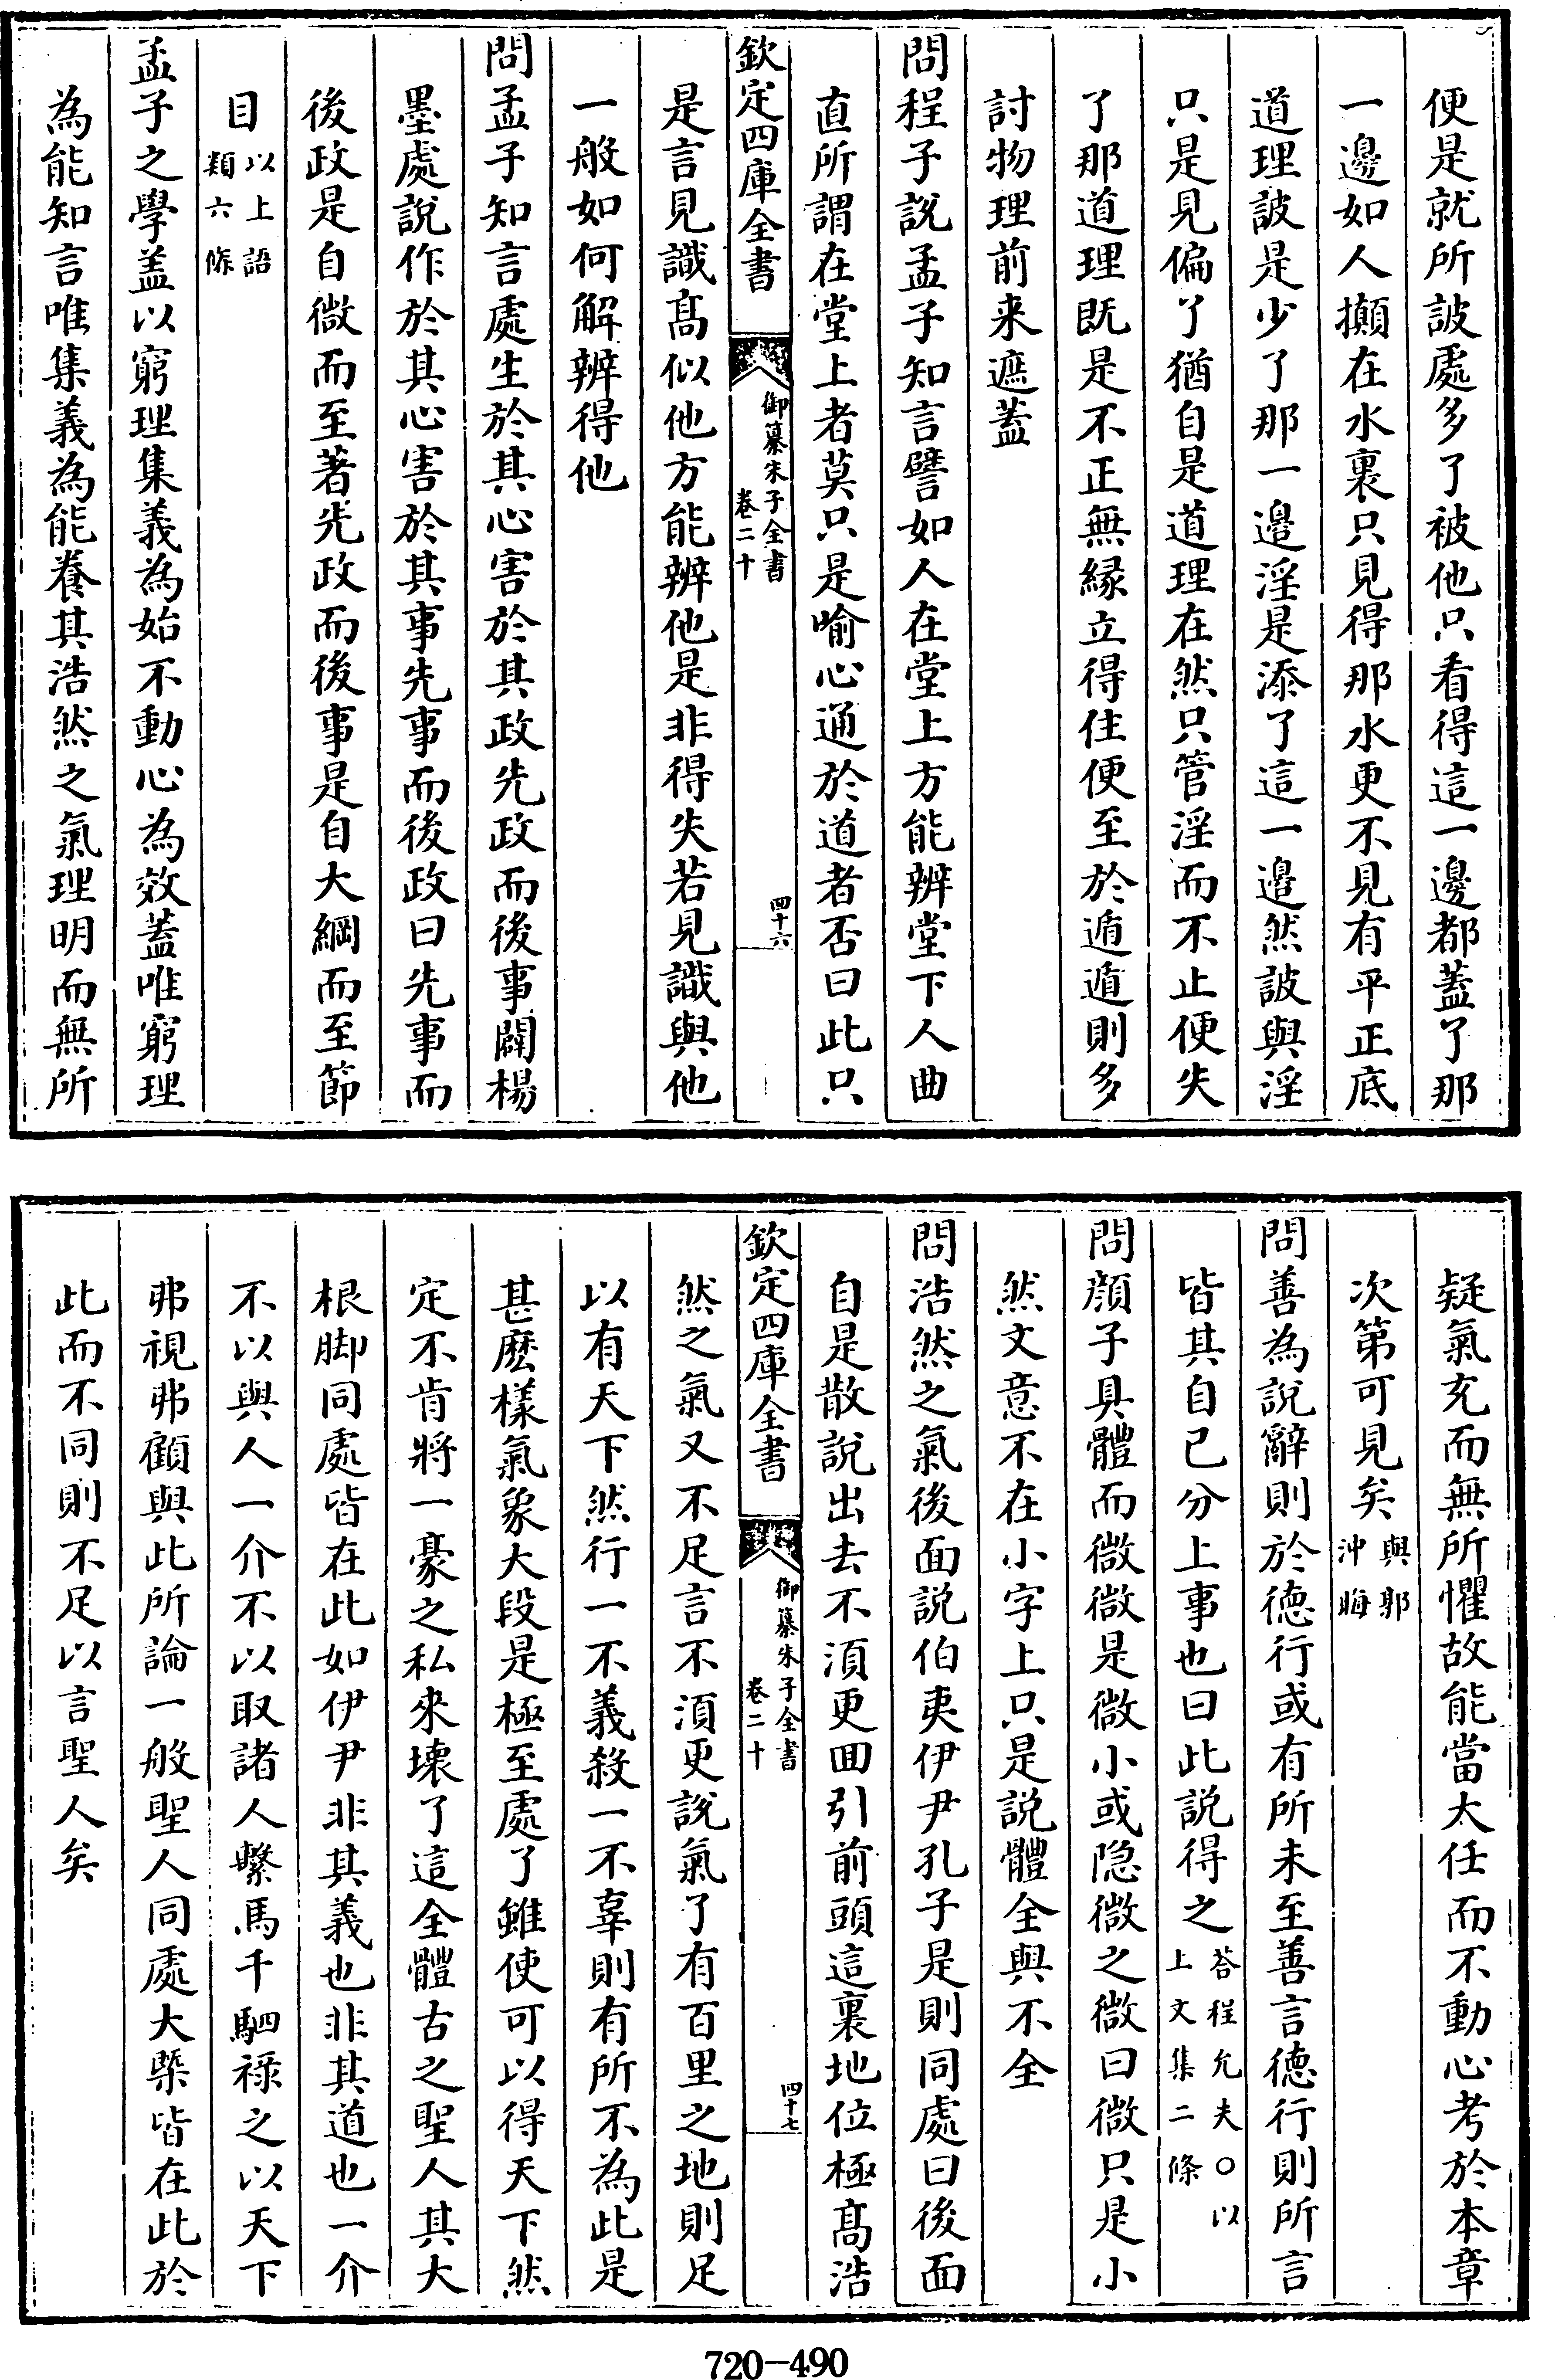 便是就所詖處多了被他只看得這一邊都蓋了那
一邊如人攧在水裏只見得那水更不見有平正底
道理詖是少了那一邊淫是添了這一邊然詖與淫
只是見偏了猶自是道理在然只管淫而不止便失
了那道理既是不正無縁立得住便至於遁遁則多
討物理前来遮蓋
問程子説孟子知言譬如人在堂上方能辨堂下人曲
直所謂在堂上者莫只是喻心通於道者否曰此只
欽定四庫全書
御纂朱子全書
卷二十
四十六
是言見識髙似他方能辨他是非得失若見識與他
一般如何解辨得他
問孟子知言處生於其心害於其政先政而後事闢楊
墨處説作於其心害於其事先事而後政曰先事而
後政是自微而至著先政而後事是自大綱而至節
目以上語類六條
孟子之學盖以窮理集義為始不動心為效蓋唯窮理
為能知言唯集義為能養其浩然之氣理明而無所
疑氣充而無所懼故能當大任而不動心考於本章
次第可見矣與郭沖晦
問善為説辭則於德行或有所未至善言德行則所言
皆其自己分上事也曰此説得之荅程允夫○以上文集二條
問顔子具體而微微是微小或隐微之微曰微只是小
然文意不在小字上只是説體全與不全
問浩然之氣後面説伯夷伊尹孔子是則同處曰後面
自是散説出去不須更囬引前頭這裏地位極髙浩
欽定四庫全書
御纂朱子全書
卷二十
四十七
然之氣又不足言不須更説氣了有百里之地則足
以有天下然行一不義殺一不辜則有所不為此是
甚麽樣氣象大段是極至處了雖使可以得天下然
定不肯將一豪之私來壊了這全體古之聖人其大
根脚同處皆在此如伊尹非其義也非其道也一介
不以與人一介不以取諸人繫馬千駟祿之以天下
弗視弗顧與此所論一般聖人同處大槩皆在此於
此而不同則不足以言聖人矣
720-490